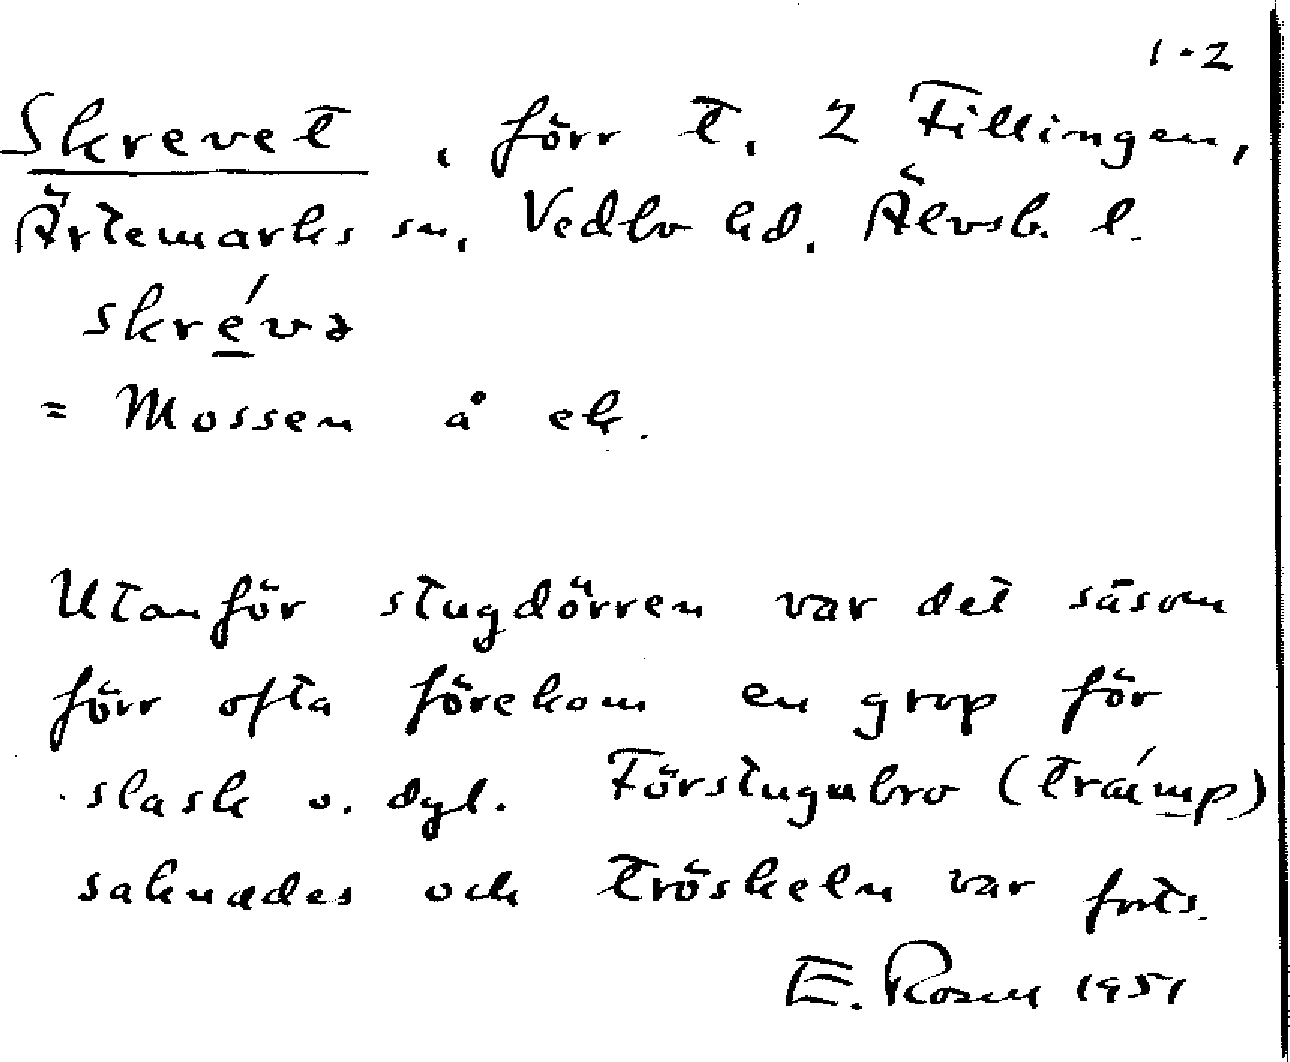 1-2
Skrevet, förr t. 2 Fillingen,
Ärtemarks sn, Vedbo hd. Älvsb. l.
skré̲və
= Mossen å ek.
Utanför stugdörren var det såsom
förr ofta förekom en grop för
slask o. dyl. Förstugubro (trám̲p)
saknades och tröskeln var forts.
E. Rosell 1951